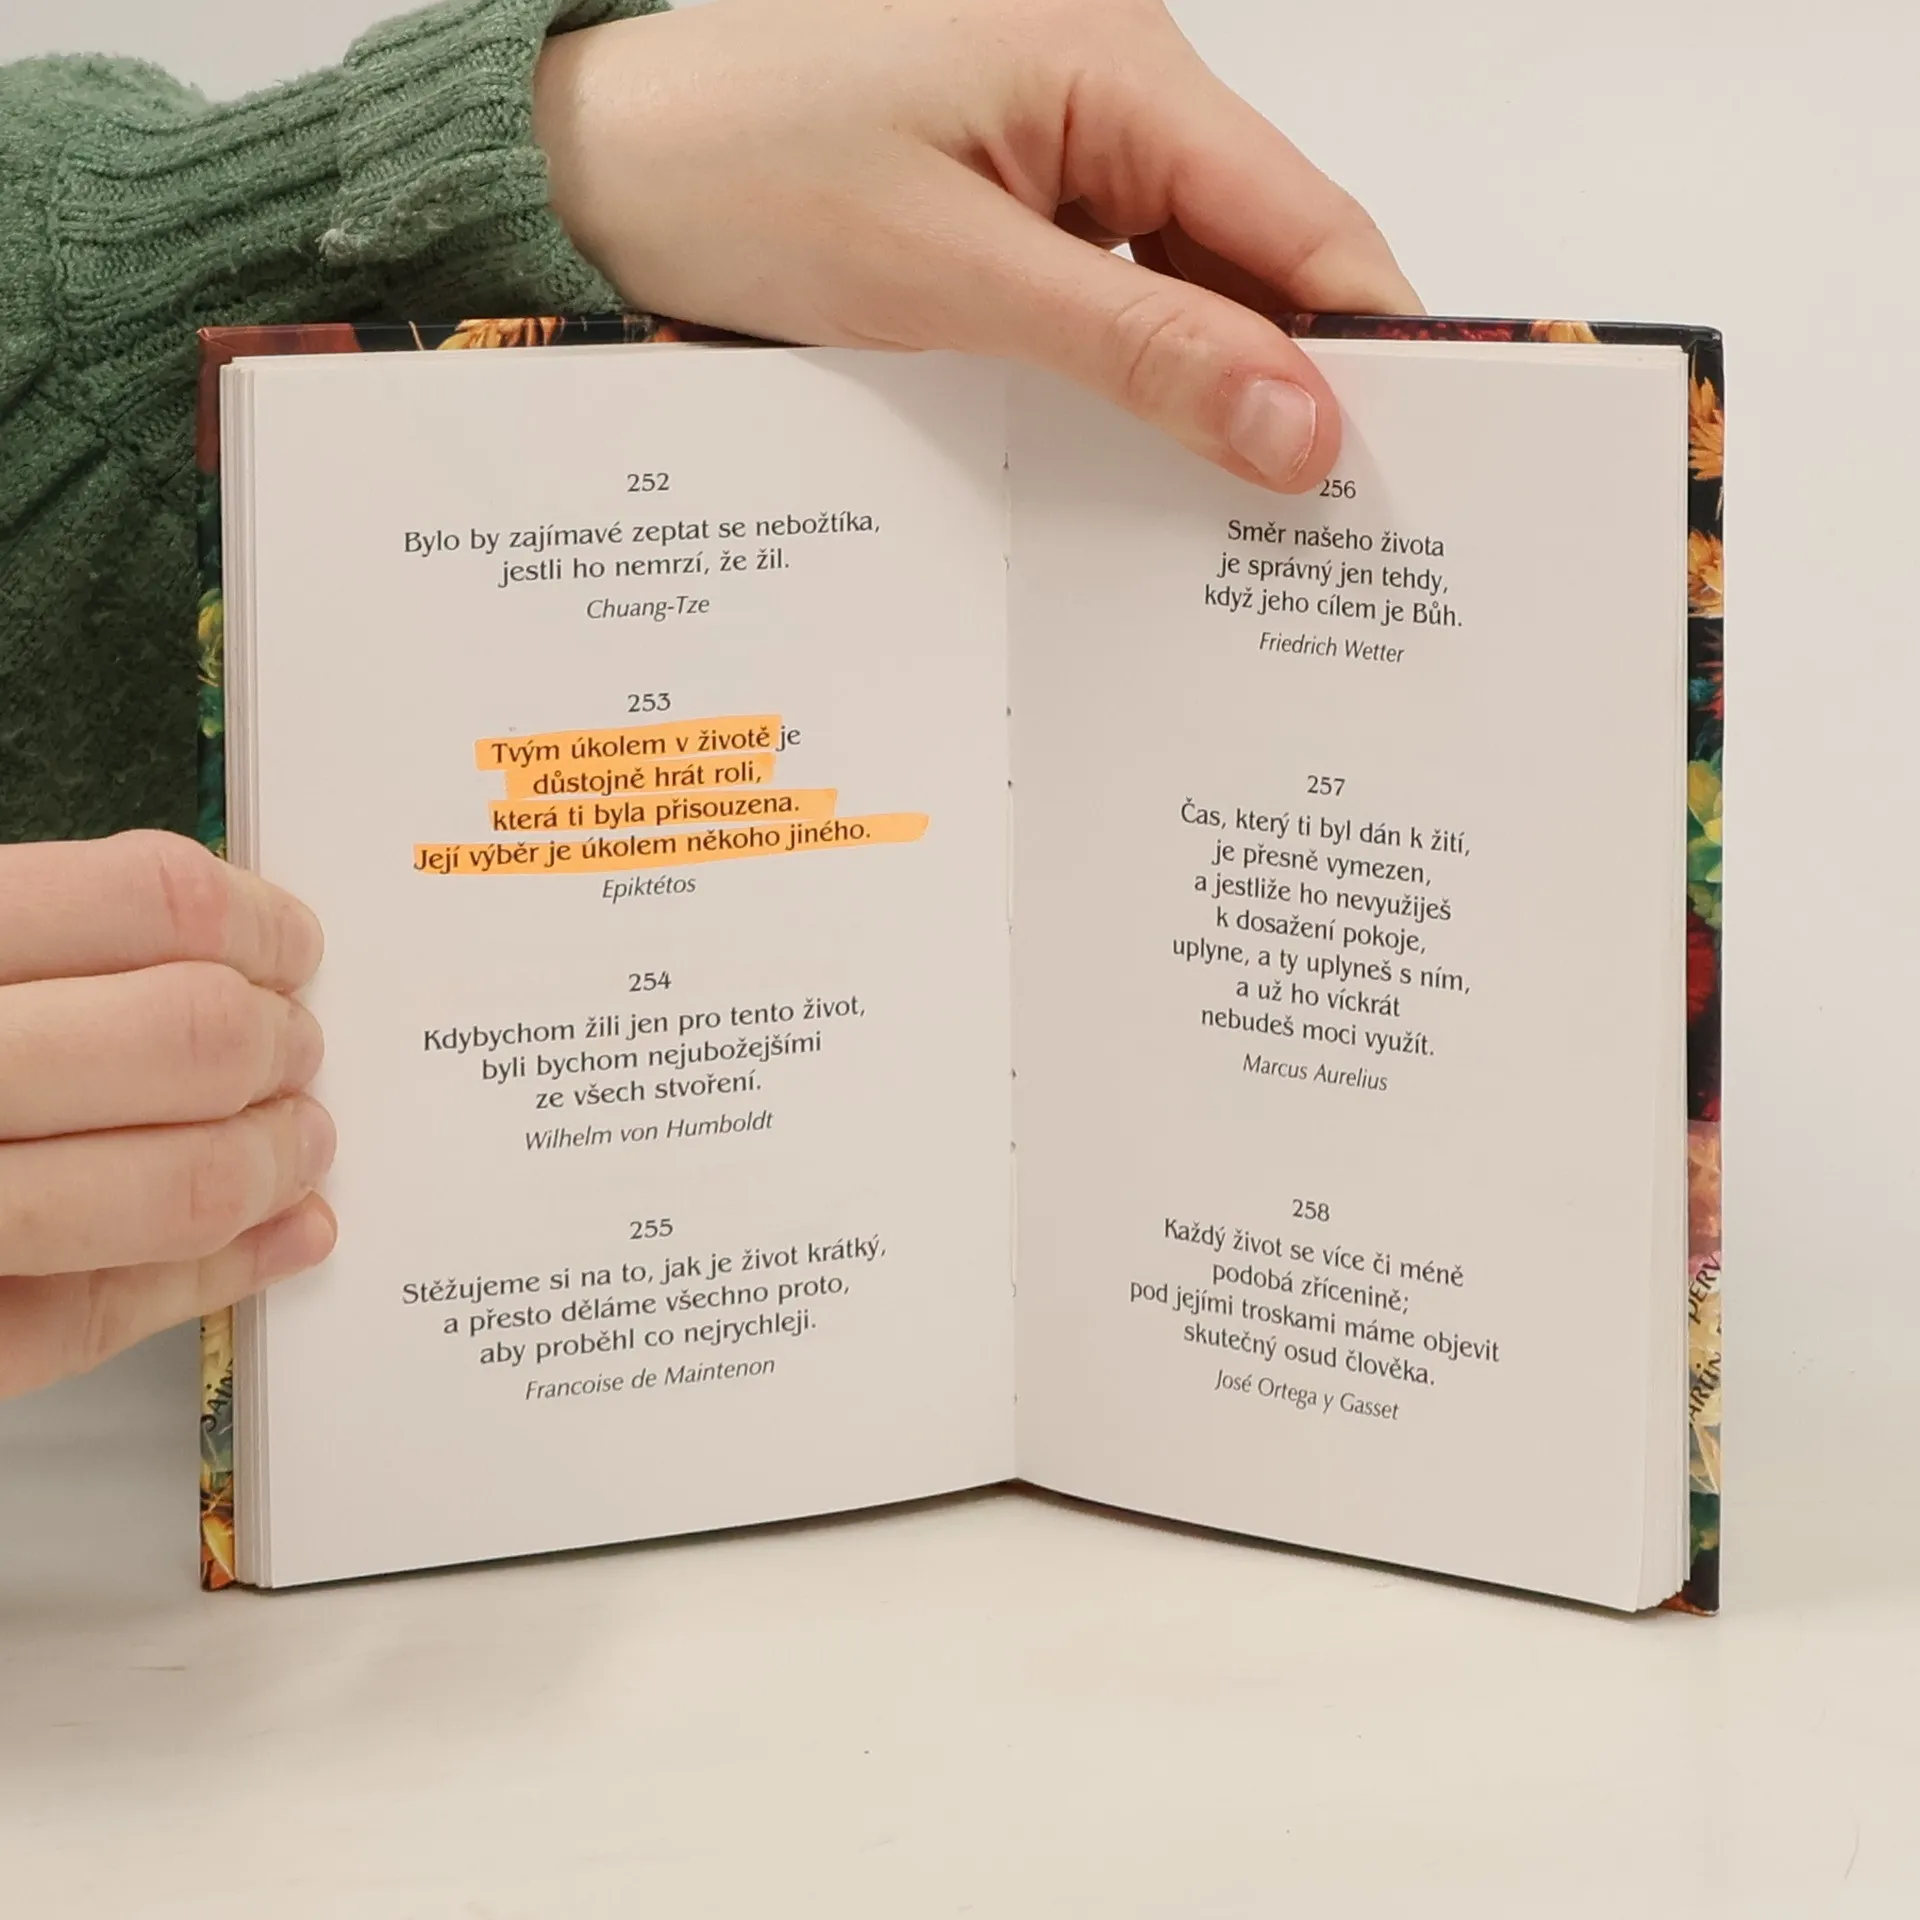 252
Bylo by zajímavé zeptat se nebožtíka,
jestli ho nemrzí, že žil.
Chuang-Tze
253
Tvým úkolem v životě je
důstojně hrát roli,
která ti byla přisouzena.
Její výběr je úkolem někoho jiného.
Epiktétos
254
Kdybychom žili jen pro tento život,
byli bychom nejubožejšími
ze všech stvoření.
Wilhelm von Humboldt
255
Stěžujeme si na to, jak je život krátký,
a přesto děláme všechno proto,
aby proběhl co nejrychleji.
Francoise de Maintenon
256
Směr našeho života
je správný jen tehdy,
když jeho cílem je Bůh.
Friedrich Wetter
257
Čas, který ti byl dán k žití,
je přesně vymezen,
a jestliže ho nevyužiješ
k dosažení pokoje,
uplyne, a ty uplyneš s ním,
a už ho víckrát
nebudeš moci využít.
Marcus Aurelius
258
Každý život se více či méně
podobá zřícenině;
pod jejími troskami máme objevit
skutečný osud člověka.
José Ortega y Gasset